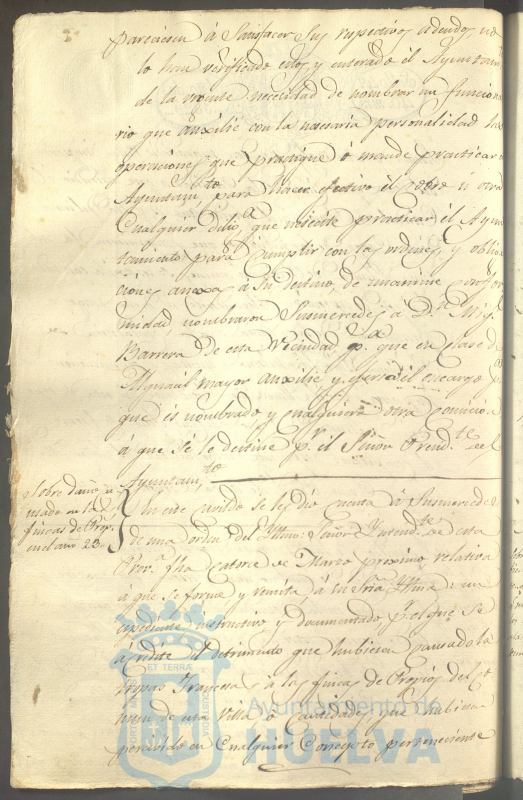 parecieren á Satisfacer sus respectivos adeudos, no
lo han verificado estos, y enterado el Ayuntam
de la urgente necesidad de nombrar un funciona
rio que auxilie con la necesaria personalidad las
operaciones que practique ó mande practicar
Ayuntam.to para hacer efectivo el cobro ú otra
Cualquier dilig.a que necesite practicar el Ayun
tamiento para cumplir con las ordenes y obliga
ciones anexas á su destino, de unanime confor
midad nombraron Susmercedes á D.n Mig.l
Barrera de esta Vecindad p.a que en clase de
Alguacil mayor auxilie y ejersa el encargo p.a
que es nombrado y cualquiera otra comicion
á que se le destine p.r el Señor Presid.te de el
Ayuntam.to
Sobre daños
causado en las
fincas de Prop.s
en el año 23
En este cavildo se les dio cuenta á Susmercedes
de una orden del Yltmo. Señor Yntend.te de esta
Prov.a fha catorce de Marzo proximo relativa
á que se forme y remita á su Sria. Yltma. un
espediente instructivo y documentado p.r el que se
acredite el detrimento que hubieren causado las
tropas Francesas á las fincas de Propios del Co
mun de esta villa ó Cantidades que hubiera
percivido en Cualquier Concepto perteneciente
PORTUS MARIS ET TERRÆ CUSTODIA
Ayuntamiento de
HUELVA